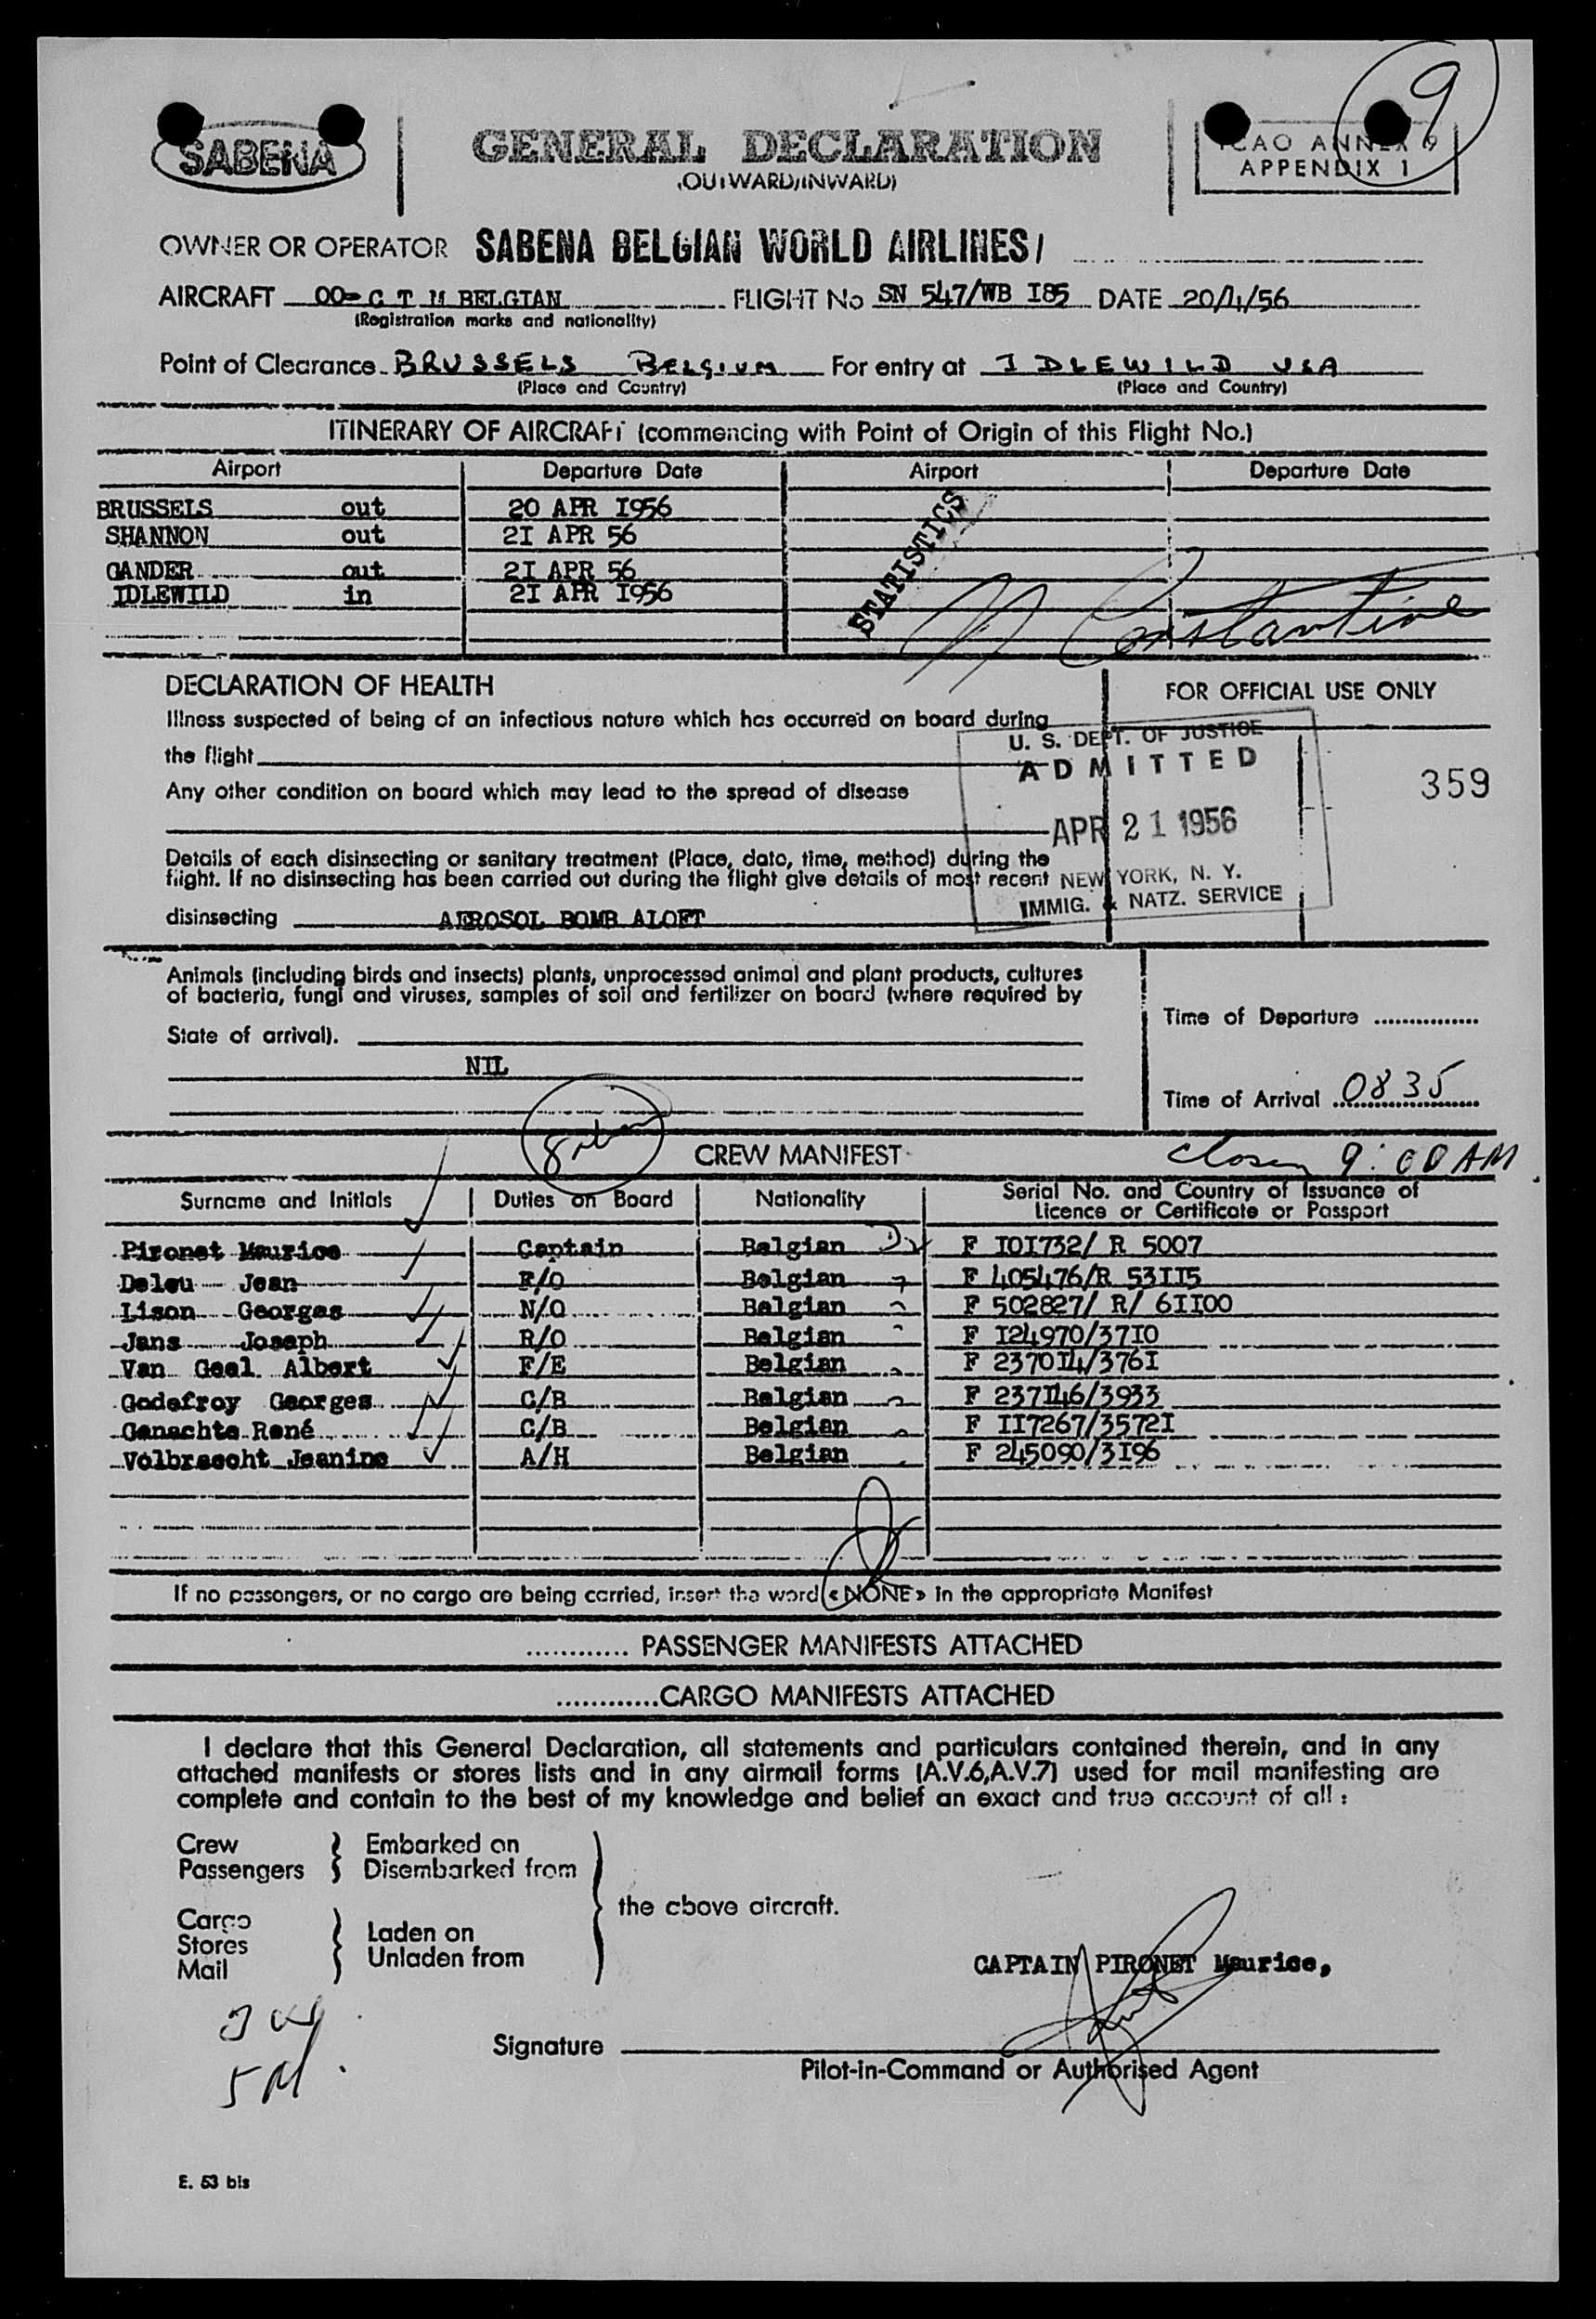 9
SABENA
GENERAL DECLARATION
(OUTWARD/INWARD)
ICAO ANNEX 9
APPENDIX 1
OWNER OR OPERATOR SABENA BELGIAN WORLD AIRLINES/
AIRCRAFT OO- C T M BELGIAN FLIGHT No SN 547/WB I85 DATE 20/4/56
(Registration marks and nationality)
Point of Clearance BRUSSELS BELGIUM For entry at IDLEWILD USA
(Place and Country) (Place and Country)
ITINERARY OF AIRCRAFT (commencing with Point of Origin of this Flight No.)
Airport Departure Date Airport Departure Date
BRUSSELS out 20 APR I956
SHANNON out 2I APR 56
GANDER out 2I APR 56
IDLEWILD in 2I APR I956
STATISTICS
Constantine
DECLARATION OF HEALTH
FOR OFFICIAL USE ONLY
Illness suspected of being of an infectious nature which has occurred on board during
the flight
Any other condition on board which may lead to the spread of disease
U. S. DEPT. OF JUSTICE
ADMITTED
APR 21 1956
NEW YORK, N. Y.
IMMIG. & NATZ. SERVICE
359
Details of each disinsecting or sanitary treatment (Place, date, time, method) during the
flight. If no disinsecting has been carried out during the flight give details of most recent
disinsecting AEROSOL BOMB ALOFT
Animals (including birds and insects) plants, unprocessed animal and plant products, cultures
of bacteria, fungi and viruses, samples of soil and fertilizer on board (where required by
State of arrival).
NIL
Time of Departure ...............
Time of Arrival 0835
8
CREW MANIFEST
9:00 AM
Surname and Initials Duties on Board Nationality Serial No. and Country of Issuance of
Licence or Certificate or Passport
Pironet Maurice Captain Belgian F IOI732/ R 5007
Deleu Jean F/O Belgian F 405476/R 53II5
Lison Georges N/O Belgian F 502827/ R/ 6II00
Jans Joseph R/O Belgian F I24970/37I0
Van Geel Albert F/E Belgian F 2370I4/376I
Godefroy Georges C/B Belgian F 237I46/3933
Ganachte René C/B Belgian F II7267/3572I
Volbrascht Jeanine A/H Belgian F 245090/3I96
If no passengers, or no cargo are being carried, insert the word «NONE» in the appropriate Manifest
............ PASSENGER MANIFESTS ATTACHED
............CARGO MANIFESTS ATTACHED
I declare that this General Declaration, all statements and particulars contained therein, and in any
attached manifests or stores lists and in any airmail forms (A.V.6,A.V.7) used for mail manifesting are
complete and contain to the best of my knowledge and belief an exact and true account of all :
Crew Embarked on
Passengers Disembarked from
the above aircraft.
Cargo
Stores Laden on
Mail Unladen from
CAPTAIN PIRONET Maurice,
Signature
Pilot-in-Command or Authorised Agent
E. 53 bis